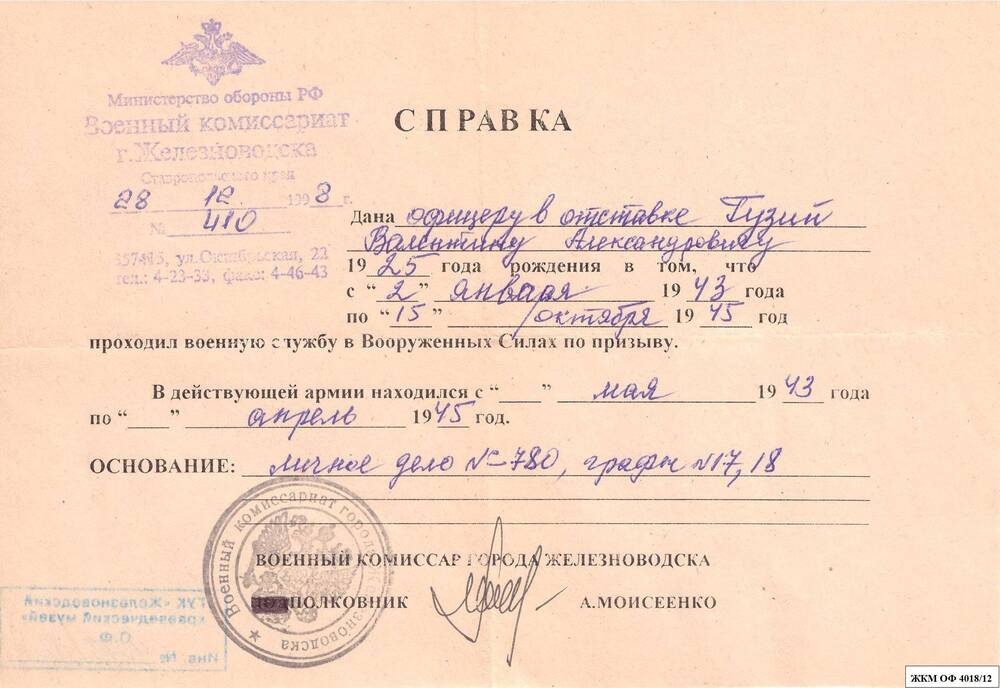 Министерство обороны РФ
Военный комиссариат
г.Железноводска
Ставропольского края
28 12 1998 г.
№ 410
357415, ул.Октябрьская, 22
тел.: 4-23-33, факс: 4-46-43
СПРАВКА
Дана офицеру в отставке Гузий
Валентину Александровичу
1925 года рождения в том, что
с "2" января 1943 года
по "15" октября 1945 год
проходил военную службу в Вооруженных Силах по призыву.
В действующей армии находился с "___" мая 1943 года
по "___" апрель 1945 год.
ОСНОВАНИЕ: личное дело №-780, графы №17, 18
ВОЕННЫЙ КОМИССАР ГОРОДА ЖЕЛЕЗНОВОДСКА
ПОЛКОВНИК А.МОИСЕЕНКО
Военный комиссариат города Железноводска
ГУК "Железноводский
краеведческий музей"
О.Ф.
Инв. №
ЖКМ ОФ 4018/12